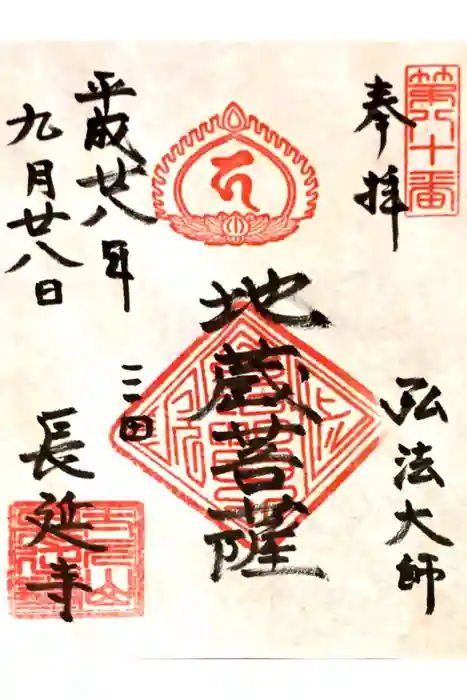 第八十番
奉拝
弘法大師
地蔵菩薩
平成廿八年
九月廿八日
三田
長延寺